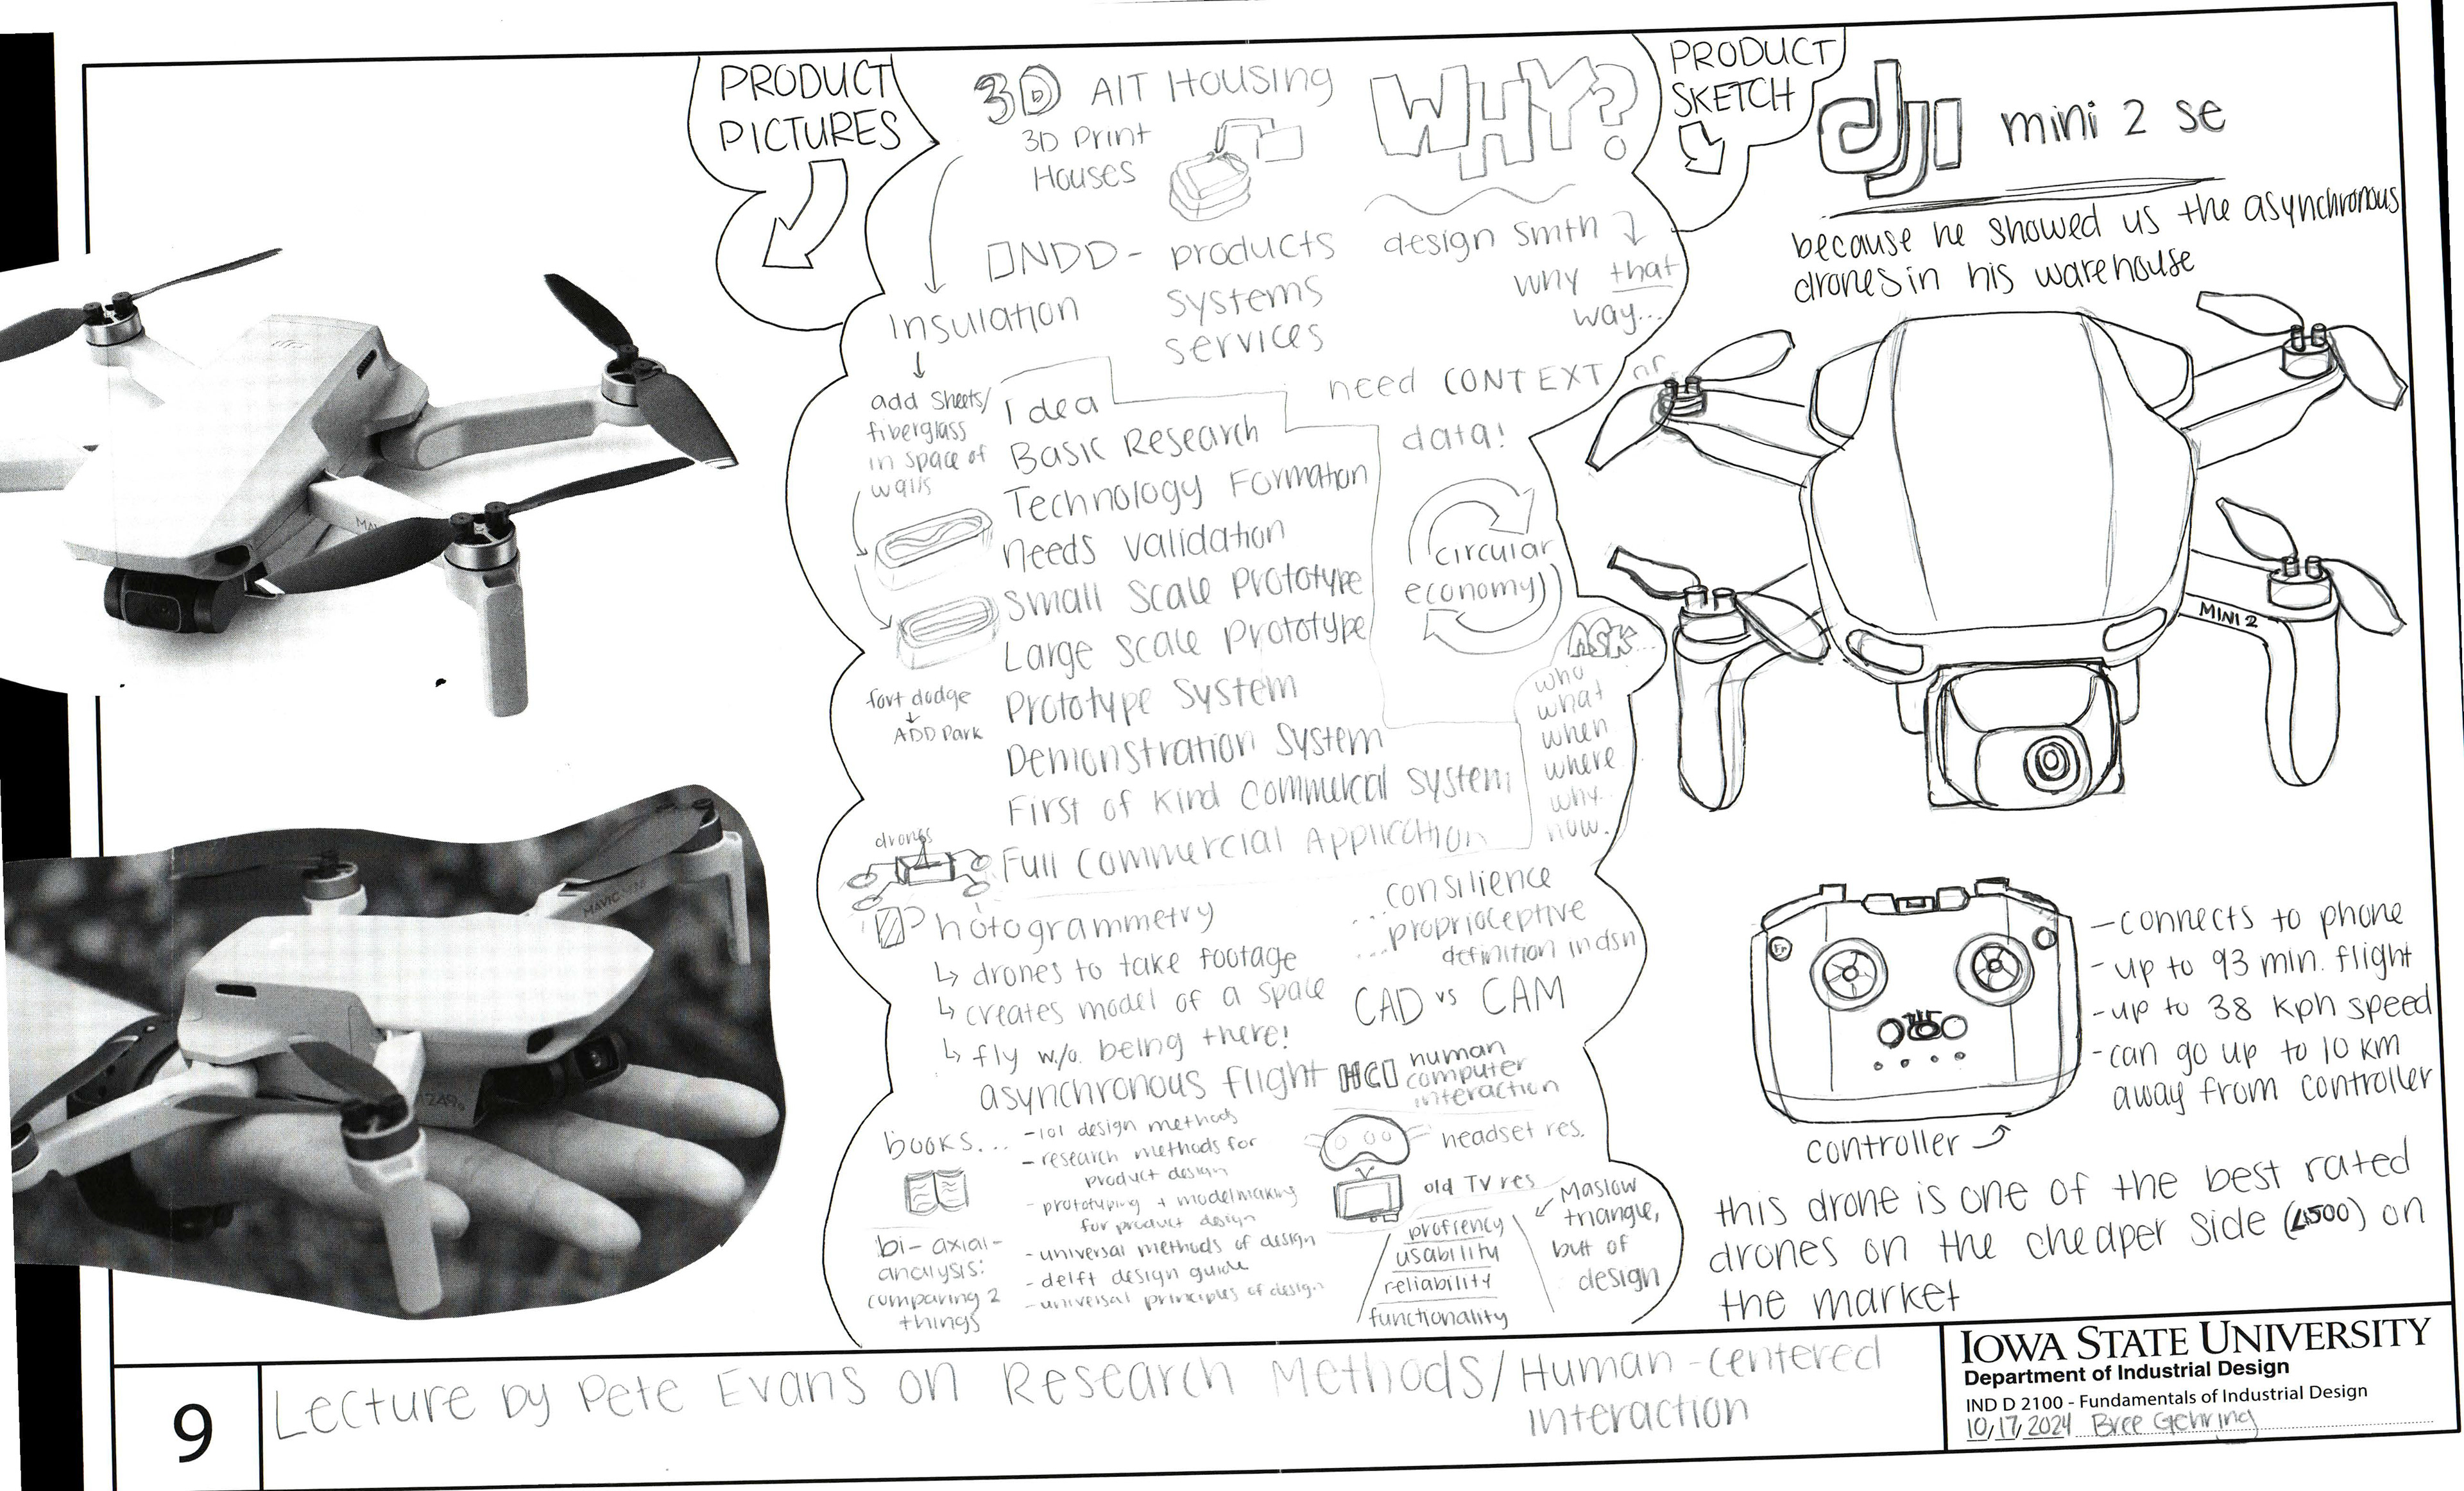 PRODUCT
PICTURES
3D AIT Housing
3D Print
Houses
WHY?
INDD - products
systems
services
design smth
why that
way...
Insulation
add sheets/
fiberglass
in space of
walls
need CONTEXT or
data!
Idea
Basic Research
Technology Formation
needs validation
Small Scale Prototype
Large Scale Prototype
Prototype System
Demonstration System
First of Kind Commercial System
Full Commercial Application
circular
economy
fort dodge
ADD Park
ASK...
who
what
when
where
why..
how.
drones
Photogrammetry
drones to take footage
creates model of a space
fly w/o. being there!
asynchronous flight
consilience
... proprioceptive
... definition in dsn
CAD vs CAM
HCI human
computer
interaction
books...
- 101 design methods
- research methods for
product design
- prototyping + modelmaking
for product design
- universal methods of design
- delft design guide
- universal principles of design
bi-axial-
analysis:
comparing 2
things
headset res.
old TV res
Maslow
triangle,
but of
design
profiency
usability
reliability
functionality
PRODUCT
SKETCH
dji mini 2 se
because he showed us the asynchronous
drones in his warehouse
MINI 2
- connects to phone
- up to 93 min. flight
- up to 38 kph speed
- can go up to 10 km
away from controller
controller
this drone is one of the best rated
drones on the cheaper side (<500) on
the market
9
Lecture by Pete Evans on Research Methods/Human-centered
interaction
IOWA STATE UNIVERSITY
Department of Industrial Design
IND D 2100 - Fundamentals of Industrial Design
10/17/2024 Bree Gehring